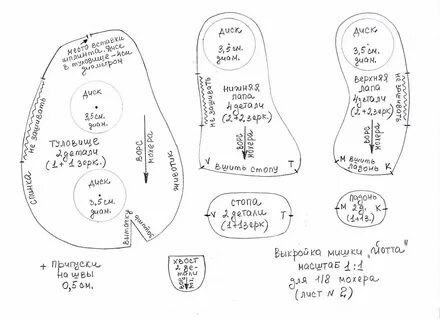 место вставки
шплинта. Диск
в туловище - 4см
диаметром
не зашивать
спинка
животик
Диск
3,5 см.
диам.
Туловище
2 детали
(1 + 1 зерк.)
ворс
мохера
Диск
3,5 см.
диам.
вытачку
+ Припуски
на швы
0,5 см.
хвост
2 де-
тали
Диск
3,5 см.
диам.
не зашивать
Нижняя
лапа
4 детали
(2+2 зерк.)
ворс
мохера
V вшить стопу T
стопа
V 2 детали T
(1+1 зерк.)
Диск
3,5 см.
диам.
не зашивать
Верхняя
лапа
4 детали
(2+2 зерк.)
ворс
мохера
М вшить К
ладонь
ладонь
М 2 д. К
(1+1з.)
Выкройка мишки "Йотта"
масштаб 1:1
для 1/8 мохера
(лист N 2)